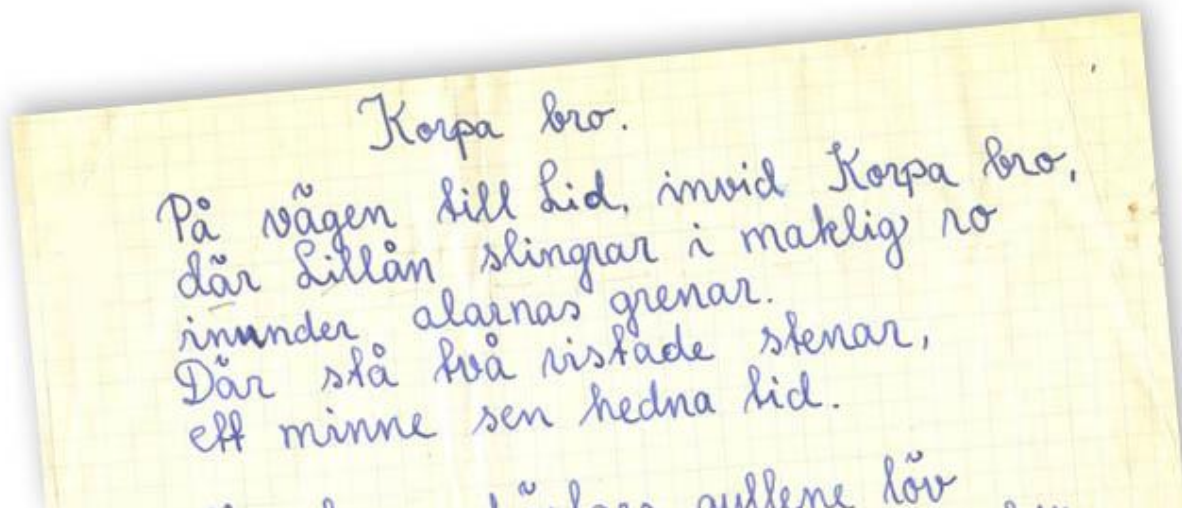 Korpa bro.
På vägen till Lid, invid Korpa bro,
där Lillån slingrar i maklig ro
inunder alarnas grenar.
Där stå två ristade stenar,
ett minne sen hedna tid.
gullene löv